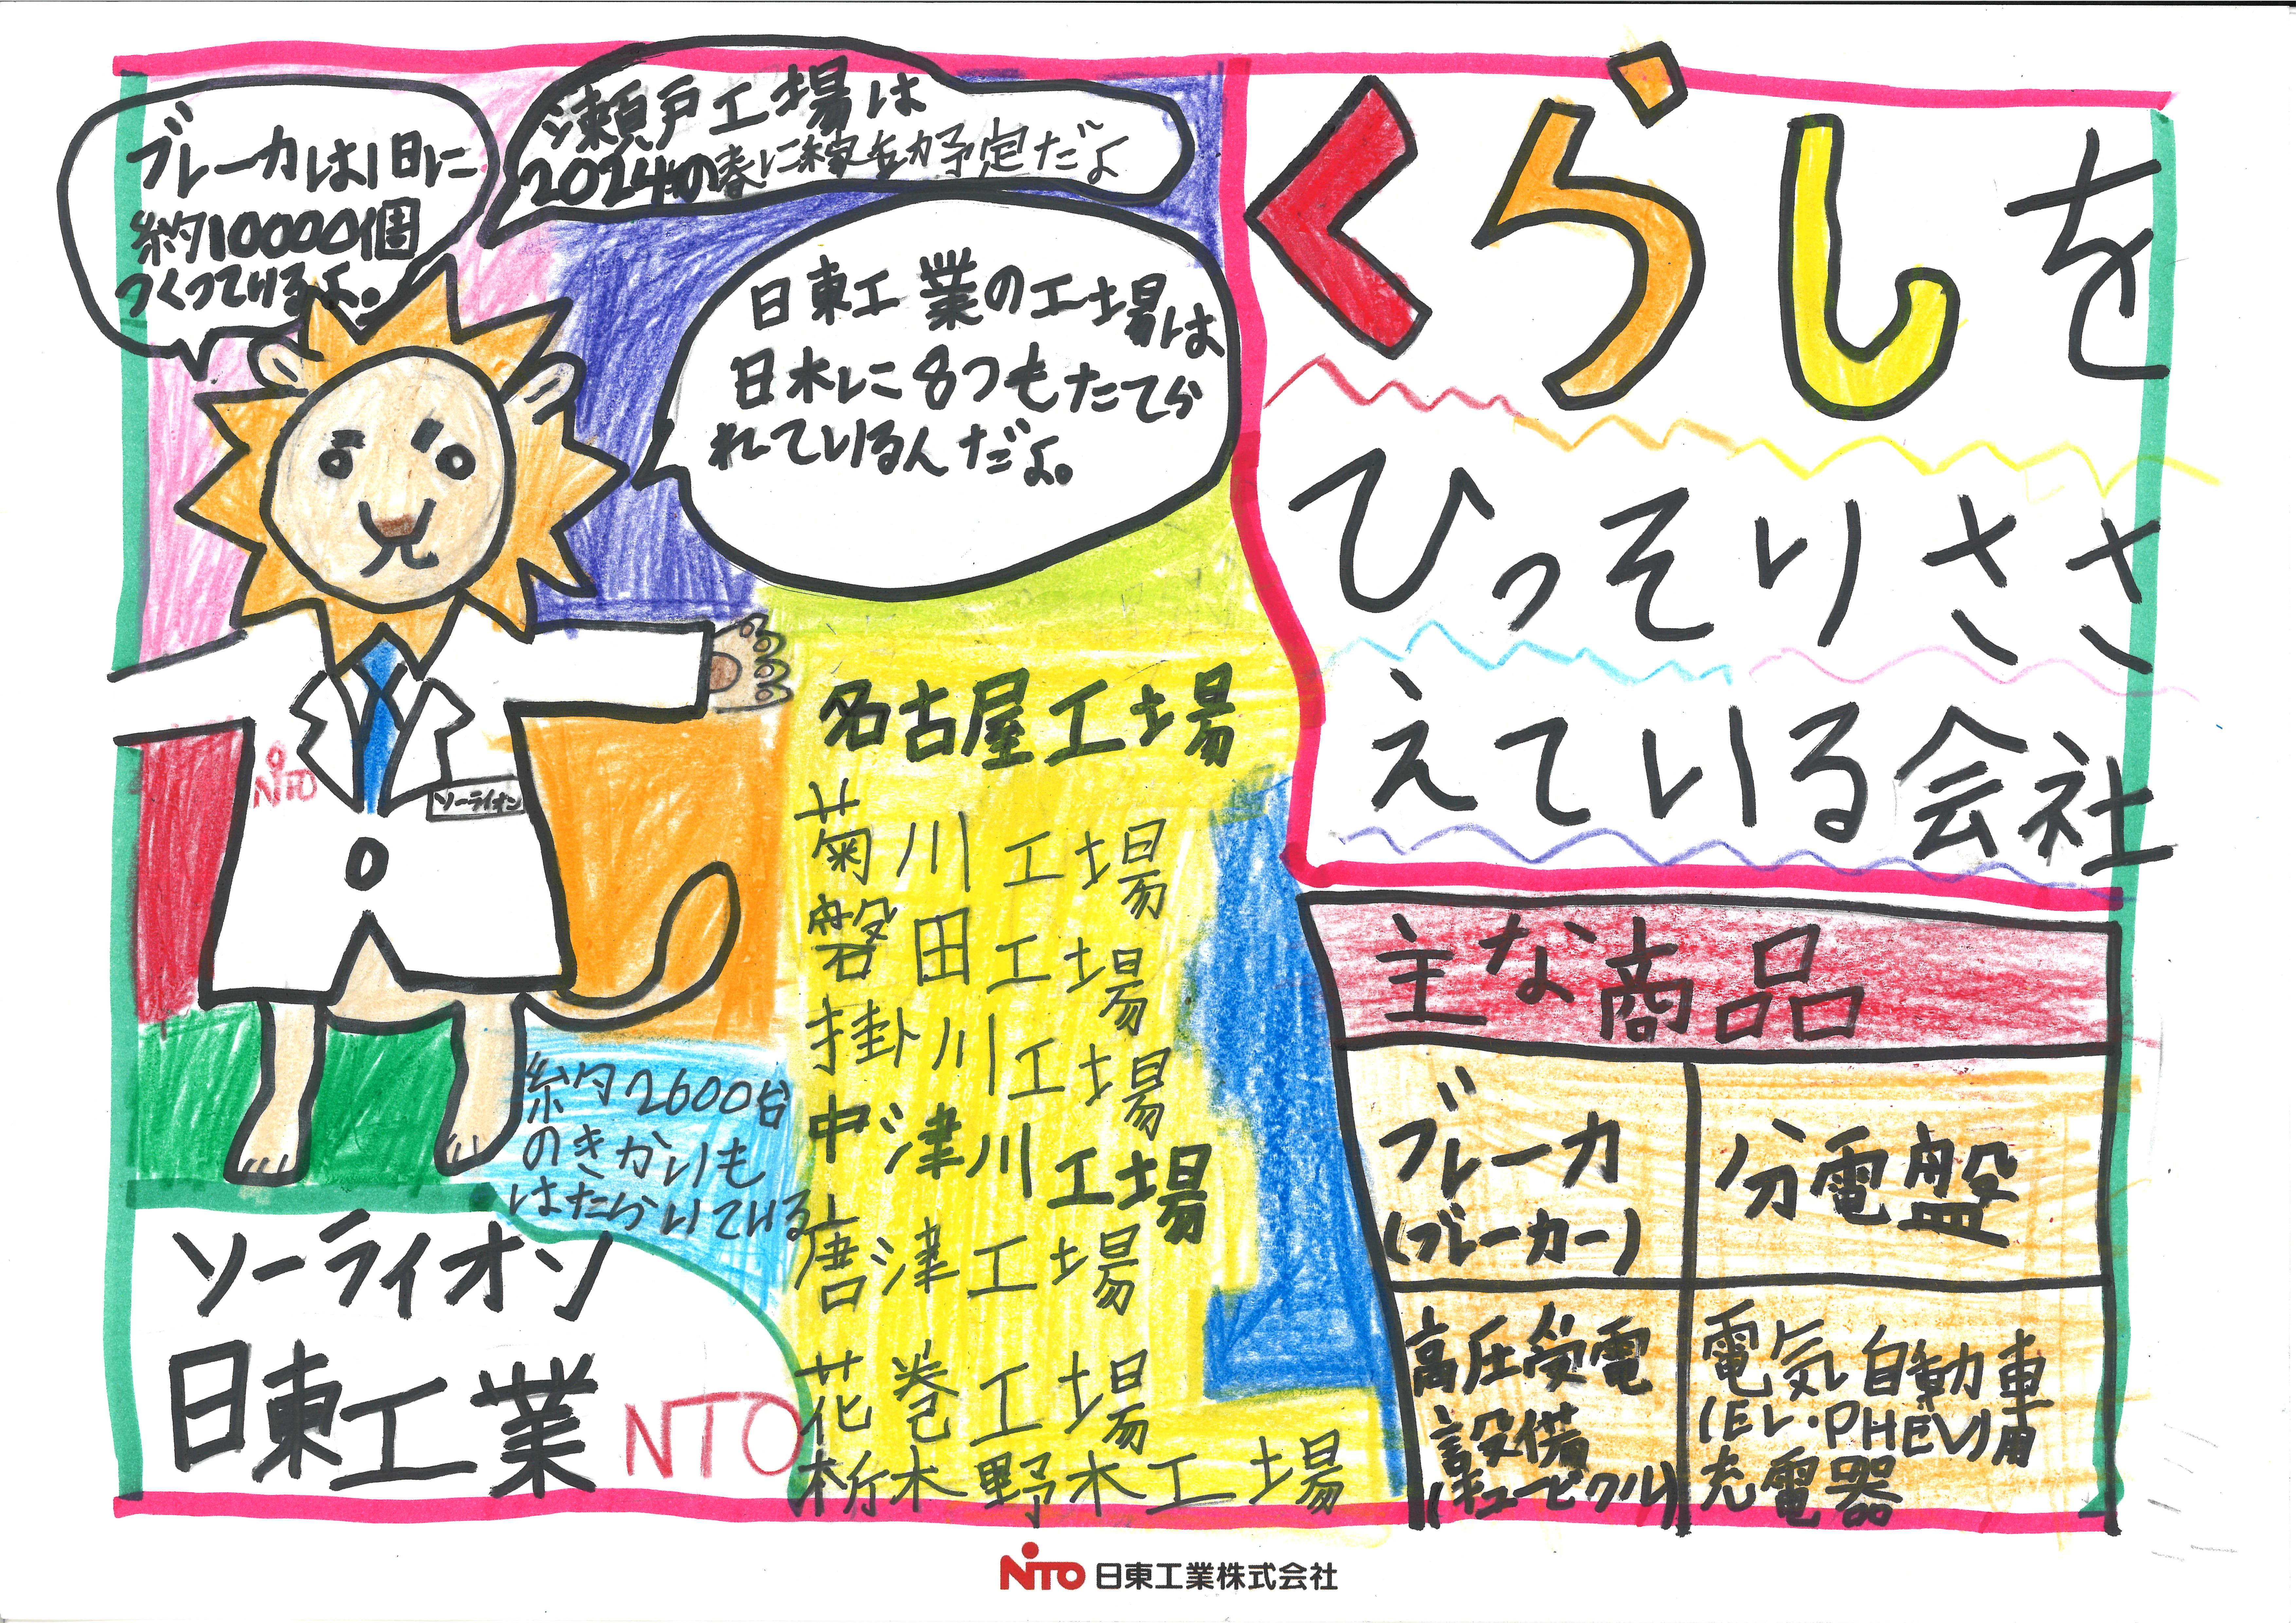 ブレーカは1日に
約10000個
つくっているよ。
瀬戸工場は
2024の春に稼働予定だよ
日東工業の工場は
日本に8つもたてら
れているんだよ。
くらしを
ひっそりささ
えている会社
NiTO
ソーライオン
名古屋工場
菊川工場
磐田工場
掛川工場
中津川工場
唐津工場
花巻工場
栃木野木工場
約2600台
のきかいも
はたらいている
ソーライオン
日東工業 NTO
主な商品
ブレーカ
(ブレーカー)
分電盤
高圧受電
設備
(キュービクル)
電気自動車
(EV・PHEV)用
充電器
NITO 日東工業株式会社